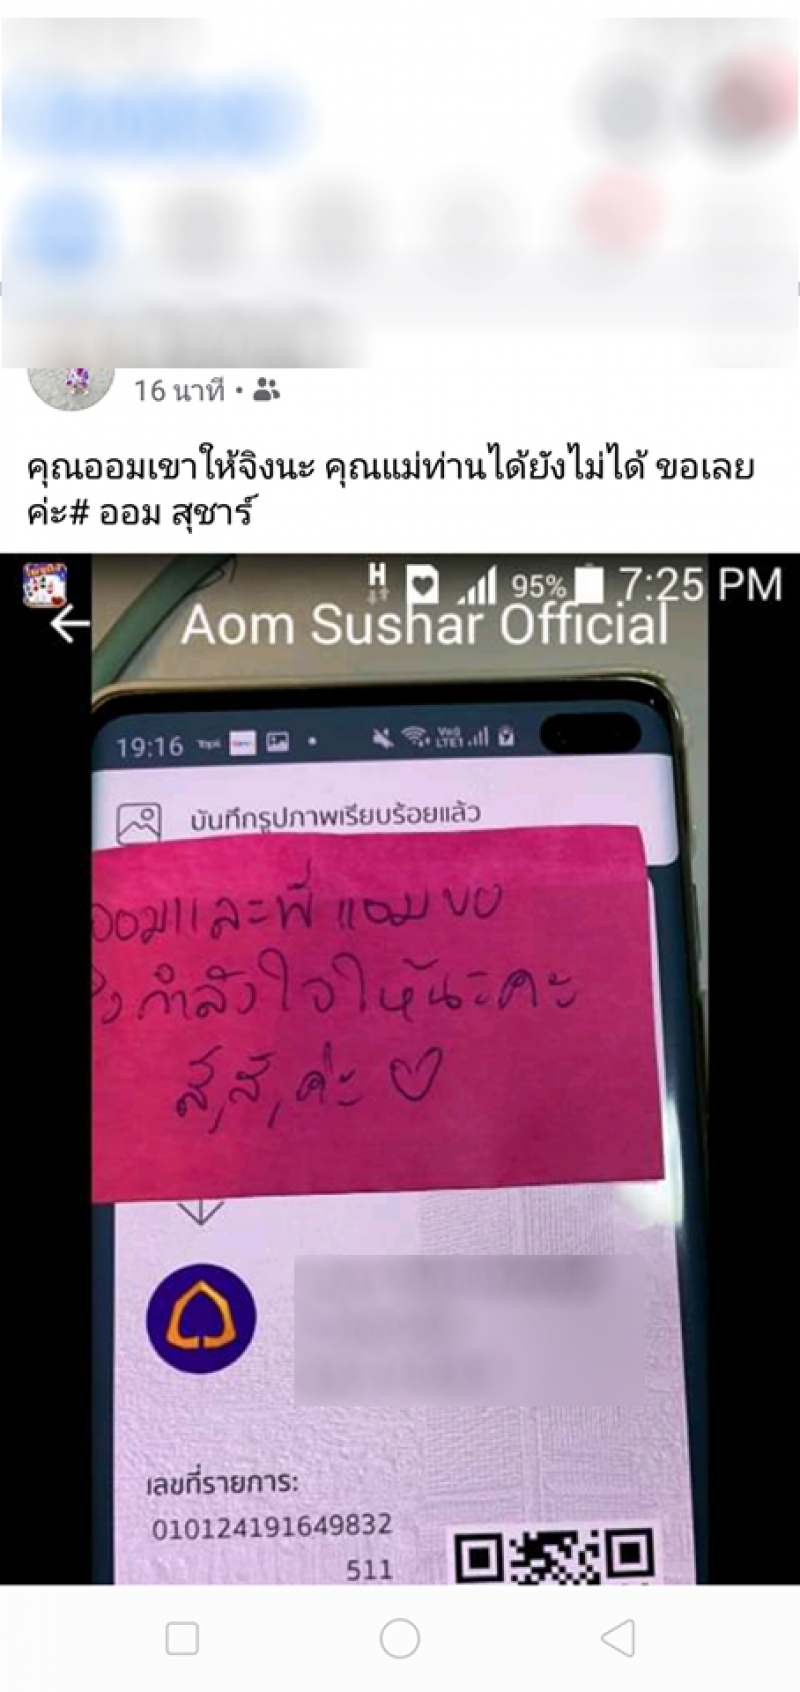 16 นาที
คุณออมเขาให้จิงนะ คุณแม่ท่านได้ยังไม่ได้ ขอเลย
ค่ะ# ออม สุชาร์
H 95% 7:25 PM
Aom Sushar Official
19:16
บันทึกรูปภาพเรียบร้อยแล้ว
ออมและพี่แอมขอ
กำลังใจให้นะคะ
สู้,สู้,ค่ะ
เลขที่รายการ:
010124191649832
511